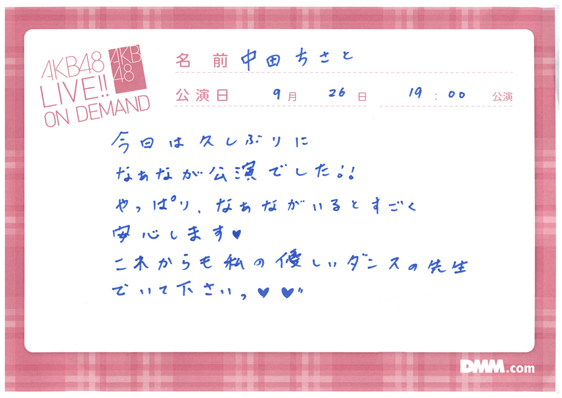 AKB48
LIVE!!
ON DEMAND
AKB
48
名前 中田ちさと
公演日 9月 26日 19:00 公演
今日は久しぶりに
なぁなが公演でした!!
やっぱり、なぁながいるとすごく
安心します♥
これからも私の優しいダンスの先生
でいて下さいっ♥♥"
DMM.com